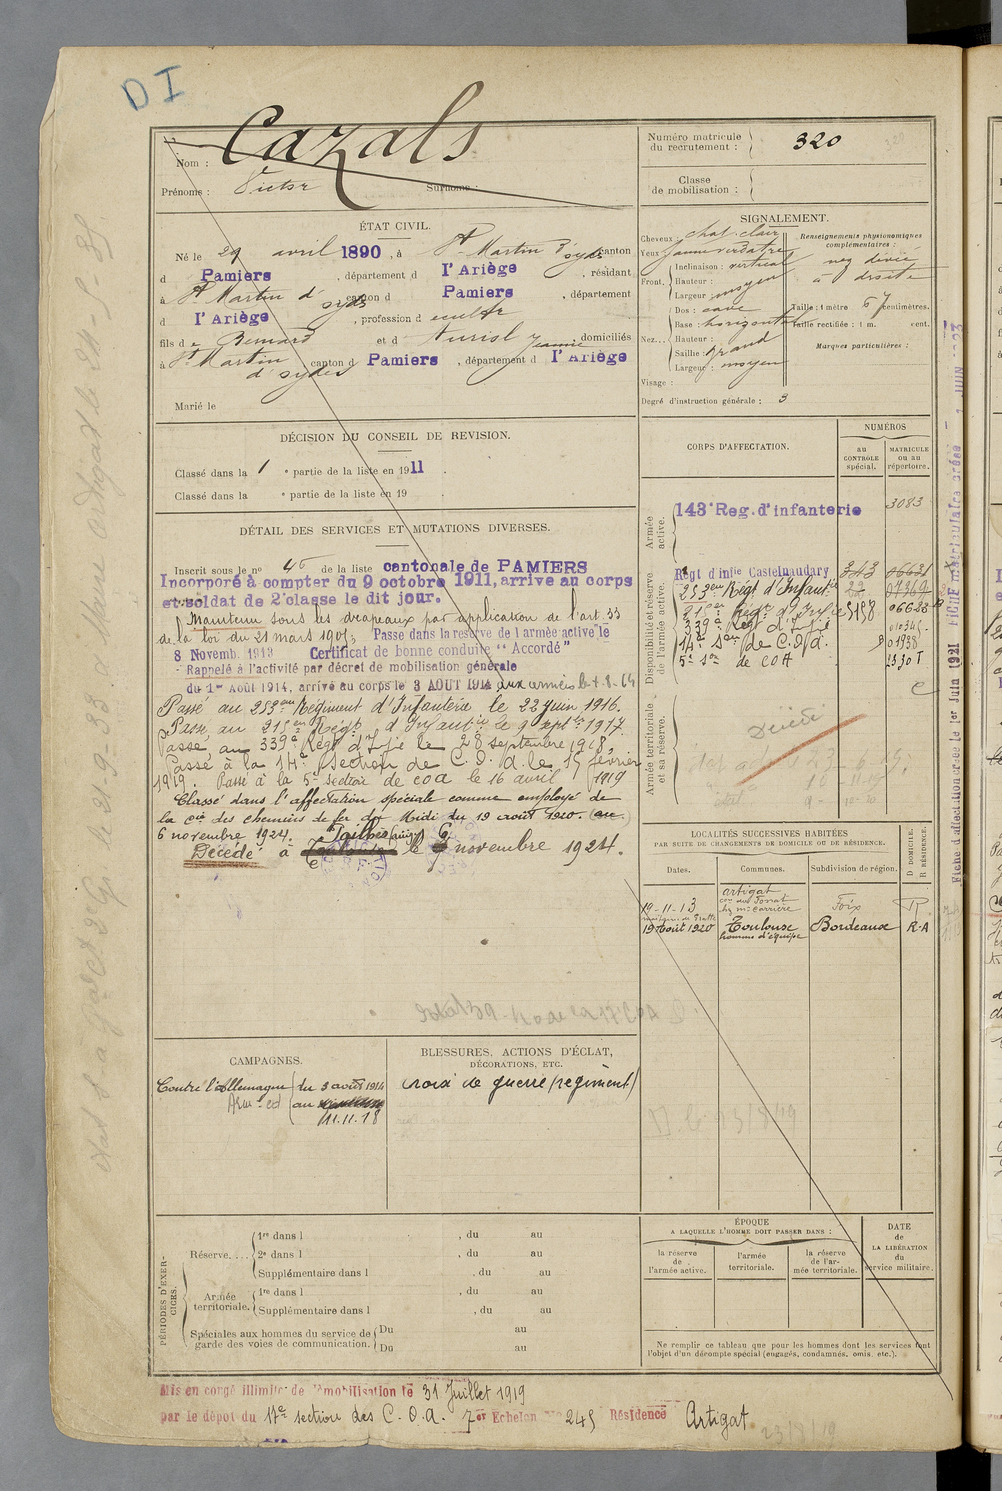 D I
Nom : Cazals
Prénoms : Victor Surnoms :
Numéro matricule du recrutement : 320
Classe de mobilisation :
ÉTAT CIVIL.
Né le 29 avril 1890, à St Martin d'oydes canton
d Pamiers, département d l'Ariège, résidant
à St Martin d'oydes canton d Pamiers, département
d l'Ariège, profession d cultr
fils de Bernard et d domiciliés
à St Martin d'oydes canton d Pamiers, département d l'Ariège
Marié le
SIGNALEMENT.
Cheveux chat. clair
Yeux jaune verdatre
Front. Inclinaison : vertical
Hauteur :
Largeur moyen
Nez... Dos : cave
Base : horizontal
Hauteur :
Saillie : grand
Largeur : moyen
Visage :
Renseignements physionomiques complémentaires :
nez dévié
à droite
Taille : 1 mètre 67 centimètres.
Taille rectifiée : 1 m. cent.
Marques particulières :
Degré d'instruction générale : 3
DÉCISION DU CONSEIL DE REVISION.
Classé dans la 1 e partie de la liste en 1911 .
Classé dans la e partie de la liste en 19 .
DÉTAIL DES SERVICES ET MUTATIONS DIVERSES.
Inscrit sous le no 46 de la liste cantonale de PAMIERS
Incorporé à compter du 9 octobre 1911, arrive au corps
et soldat de 2e classe le dit jour.
Maintenu sous les drapeaux par application de l'art. 33
de la loi du 21 mars 1905; Passe dans la réserve de l'armée active le
8 Novemb. 1913 Certificat de bonne conduite "Accordé"
Rappelé à l'activité par décret de mobilisation générale
du 1er Août 1914, arrivé au corps le 3 AOUT 1914 aux armées le
Passé au 253eme Régiment d'Infanterie le 22 juin 1916.
Passé au 215em Régt d'Infantie le 9 septbre 1917.
Passé au 339e Régt d'Ife le 28 septembre 1918,
Passé à la 14e section de C.O.A. le 15 février
1919. Passé à la 5e section de COA le 16 avril 1919
Classé dans l'affectation spéciale comme employé de
la cie des chemins de fer du Midi du 19 août 1920. au
6 novembre 1924.
Décédé à le novembre 1924.
CORPS D'AFFECTATION.
NUMÉROS
au CONTRÔLE spécial.
MATRICULE ou au répertoire.
Armée active.
143e Reg. d'infanterie 3083
Disponibilité et réserve de l'armée active.
Régt d'infie Castelnaudary 343
253em Régt d'Infantie
215em Régt d'Infie 5198 06628
339e Régt d'Ife
14e Son de C.O.A. 01938
5e Son de COA
Armée territoriale et sa réserve.
Décédé
LOCALITÉS SUCCESSIVES HABITÉES
PAR SUITE DE CHANGEMENTS DE DOMICILE OU DE RÉSIDENCE.
Dates. Communes. Subdivision de région. D DOMICILE. R RÉSIDENCE.
19-11-13 Artigat Foix R
19 Août 1920 Toulouse homme d'équipe Bordeaux R-A
CAMPAGNES.
Contre l'Allemagne du 3 août 1914
au
11.11.18
BLESSURES, ACTIONS D'ÉCLAT,
DÉCORATIONS, ETC.
Croix de guerre (régiment)
PÉRIODES D'EXERCICES.
Réserve.... 1re dans l , du au
2e dans l , du au
Supplémentaire dans l , du au
Armée territoriale. 1re dans l , du au
Supplémentaire dans l , du au
Spéciales aux hommes du service de garde des voies de communication. Du au
Du au
ÉPOQUE
A LAQUELLE L'HOMME DOIT PASSER DANS :
la réserve de l'armée active.
l'armée territoriale.
la réserve de l'armée territoriale.
DATE de LA LIBÉRATION du service militaire.
Ne remplir ce tableau que pour les hommes dont les services font
l'objet d'un décompte spécial (engagés, condamnés, omis, etc.).
Mis en congé illimité de démobilisation le 31 Juillet 1919
par le dépôt du 17e section des C.O.A. 7er Echelon No 245 Résidence Artigat
23/8/19